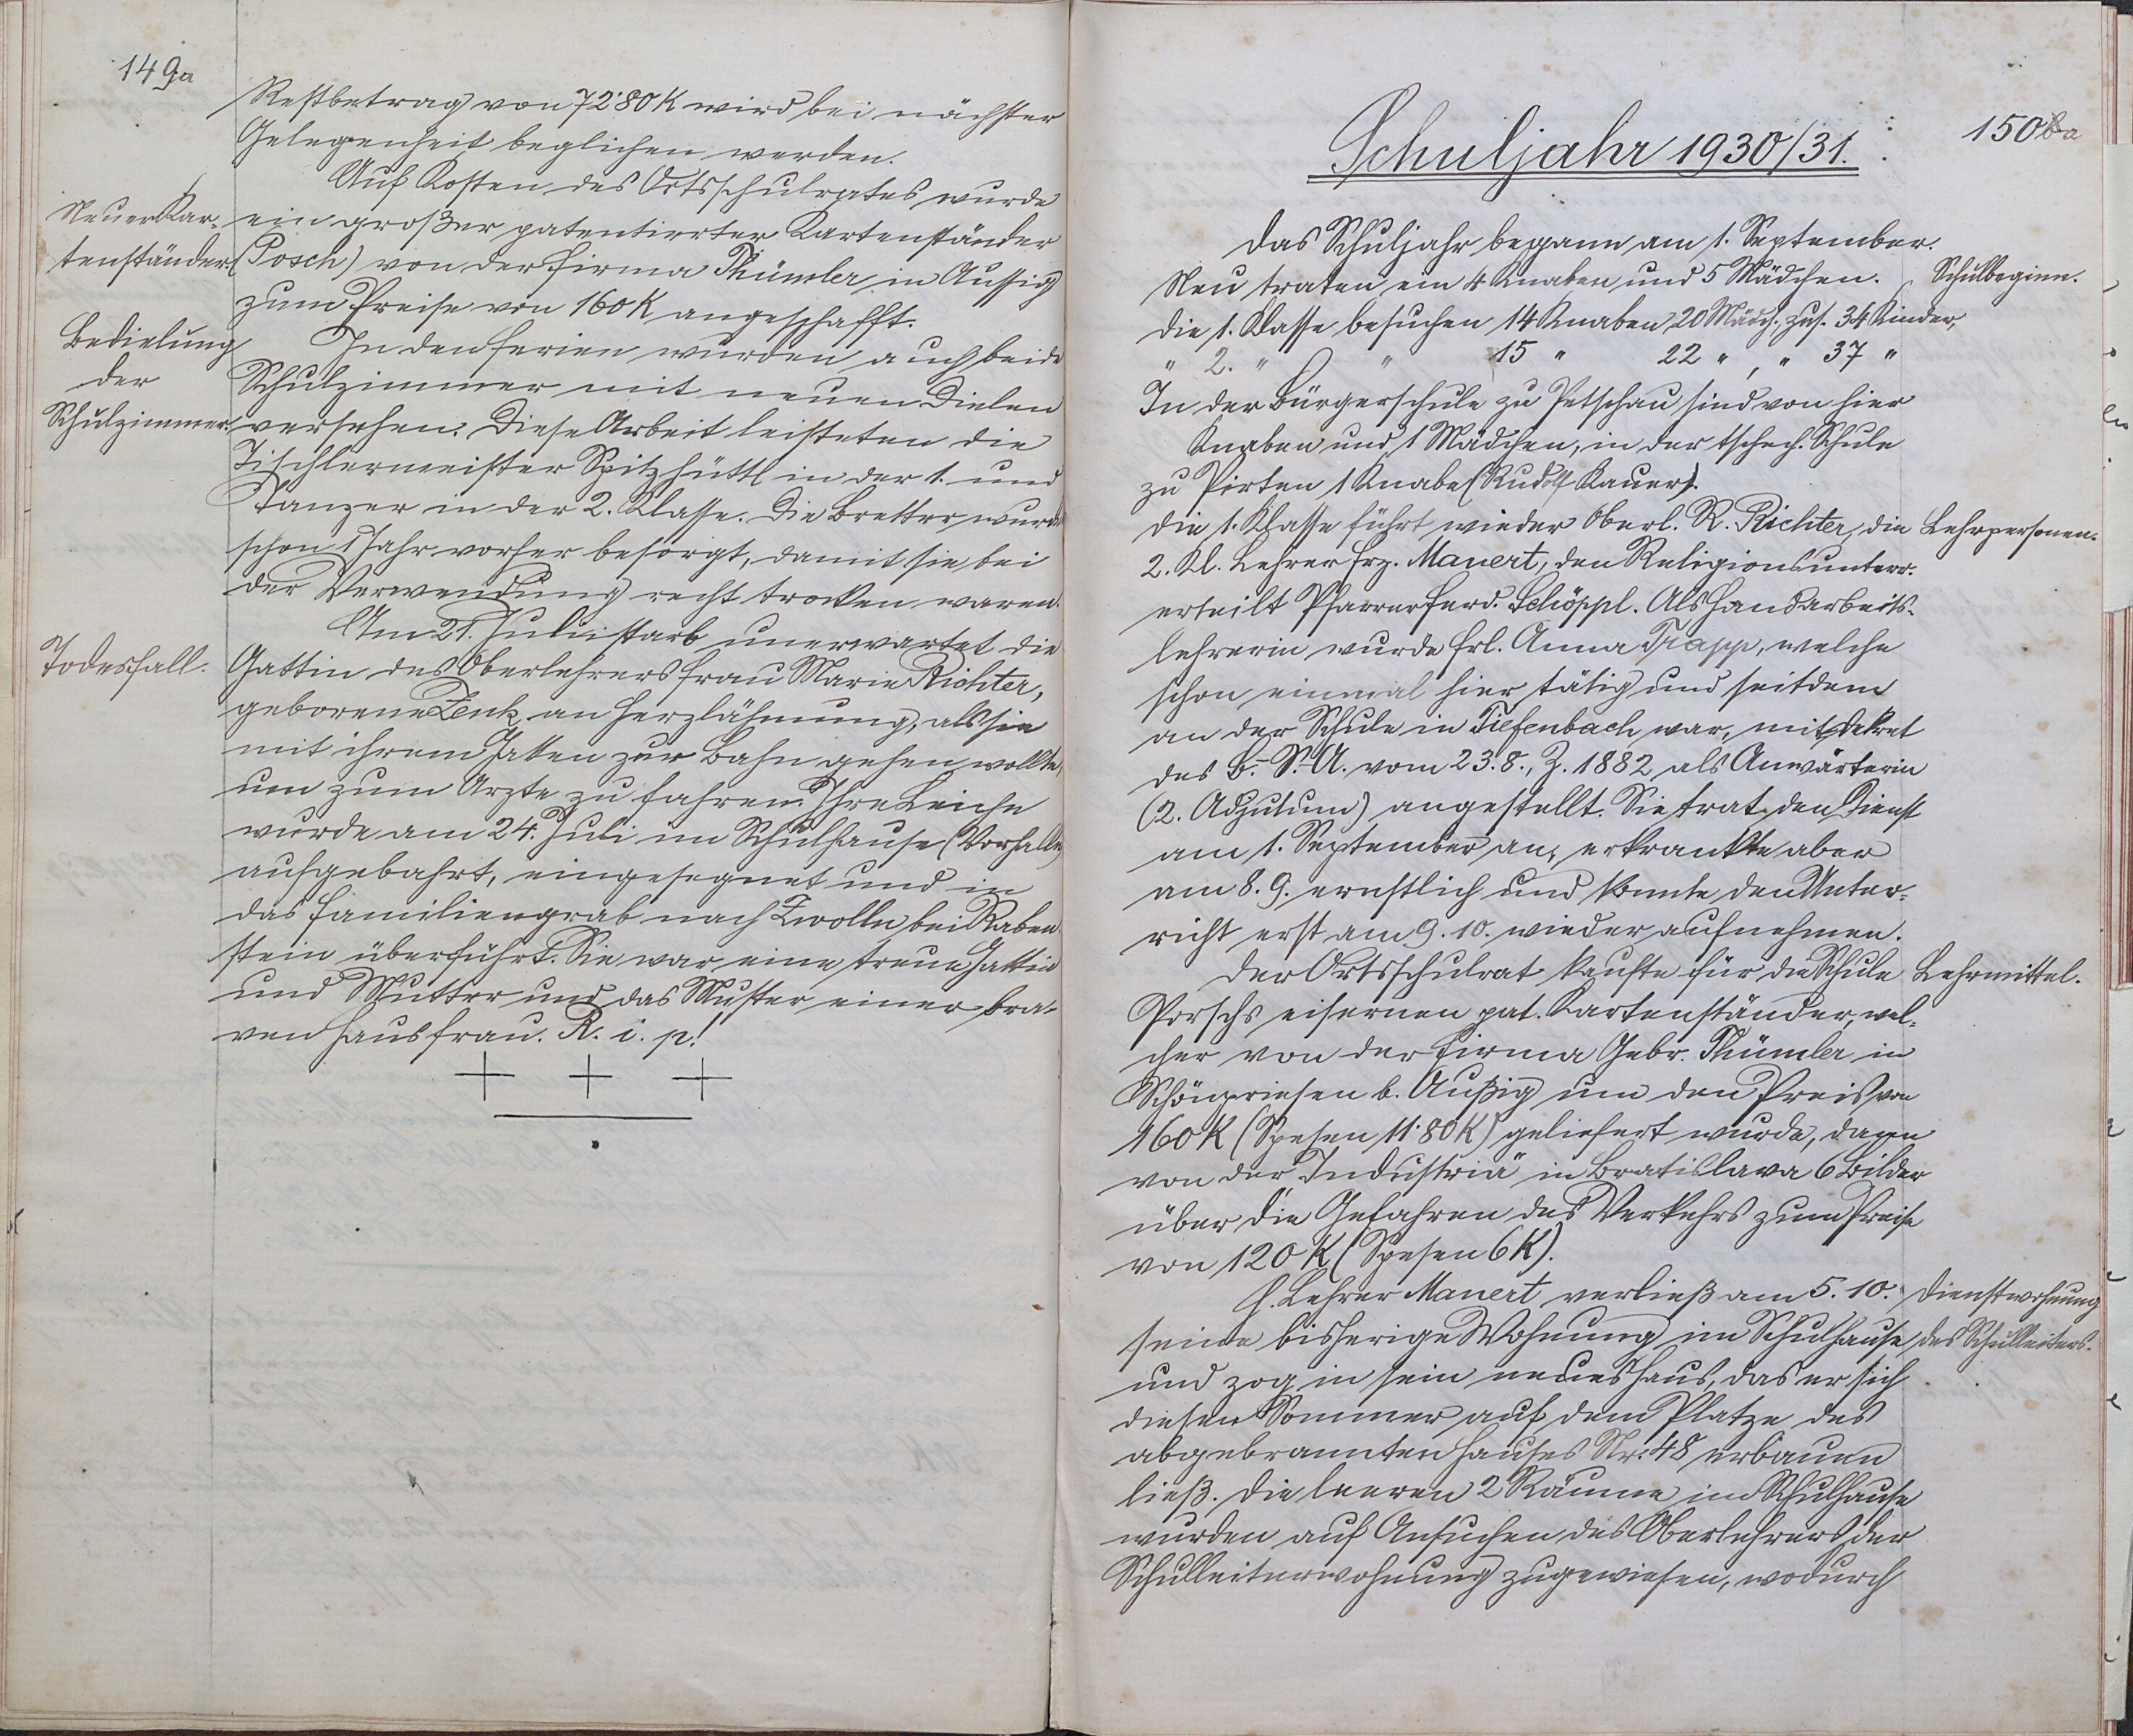 149a
Restbetrag von 72·80 K wird bei nächster
Gelegenheit beglichen werden.
Auf Kosten des Ortsschulrates wurde
Neuer Kar-
tenständer.
ein großer patentierter Kartenständer
(Posch) von der Firma Thümler in Aussig
zum Preise von 160 K angeschafft.
Bedielung
der
Schulzimmer.
In den Ferien wurden auch beide
Schulzimmer mit neuen Dielen
versehen. Diese Arbeit leisteten die
Tischlermeister Spitzhüttl in der 1. und
Tanzer in der 2. Klasse. Die Bretter wurden
schon 1 Jahr vorher besorgt, damit sie bei
der Verwendung recht trocken waren.
Todesfall.
Am 21. Juli starb unerwartet die
Gattin des Oberlehrers Frau Marie Richter,
geborene Zenk an Herzlähmung, als sie
mit ihrem Gatten zur Bahn gehen wollte,
um zum Arzte zu fahren. Ihre Leiche
wurde am 24. Juli im Schulhause (Vorhalle)
aufgebahrt, eingesegnet und in
das Familiengrab nach Zwolln bei Raben-
stein überführt. Sie war eine treue Gattin
und Mutter und das Muster einer bra-
ven Hausfrau. R. i. p.!
150 a
Schuljahr 1930/31.
Das Schuljahr begann am 1. September.
Schulbeginn.
Neu traten ein 4 Knaben und 5 Mädchen.
Die 1. Klasse besuchen 14 Knaben 20 Mädch., zus. 34 Kinder,
" 2. " " 15 " 22 " , " 37 "
In der Bürgerschule zu Petschau sind von hier
Knaben und 1 Mädchen, in der tschech. Schule
zu Pirten 1 Knabe (Rudolf Kauer).
Lehrpersonen.
Die 1. Klasse führt wieder Oberl. R. Richter, die
2. Kl. Lehrer Frz. Manert, den Religionsunterr.
erteilt Pfarrer Ferd. Schöppl. Als Handarbeits-
lehrerin wurde Frl. Anna Trapp, welche
schon einmal hier tätig und seitdem
an der Schule in Tiefenbach war, mit Dekret
des B.-S.-A. vom 23.8., Z. 1882 als Anwärterin
(2. Adjutum) angestellt. Sie trat den Dienst
am 1. September an, erkrankte aber
am 8. 9. ernstlich und konnte den Unter-
richt erst am 9. 10. wieder aufnehmen.
Lehrmittel.
Der Ortsschulrat kaufte für die Schule
Porschs eisernen pat. Kartenständer, wel-
cher von der Firma Gebr. Thümler in
Schönpriesen b. Außig um den Preis von
160 K (Spesen 11·80 K) geliefert wurde, dann
von der „Industria" in Bratislava 6 Bilder
über die Gefahren des Verkehrs zum Preise
von 120 K (Spesen 6 K).
Dienstwohnung
des Schulleiters.
H. Lehrer Manert verließ am 5. 10.
seine bisherige Wohnung im Schulhause
und zog in sein neues Haus, das er sich
diesen Sommer auf dem Platze des
abgebrannten Hauses Nr: 48 erbauen
ließ. Die leeren 2 Räume im Schulhause
wurden auf Ansuchen des Oberlehrers der
Schulleiterwohnung zugewiesen, wodurch